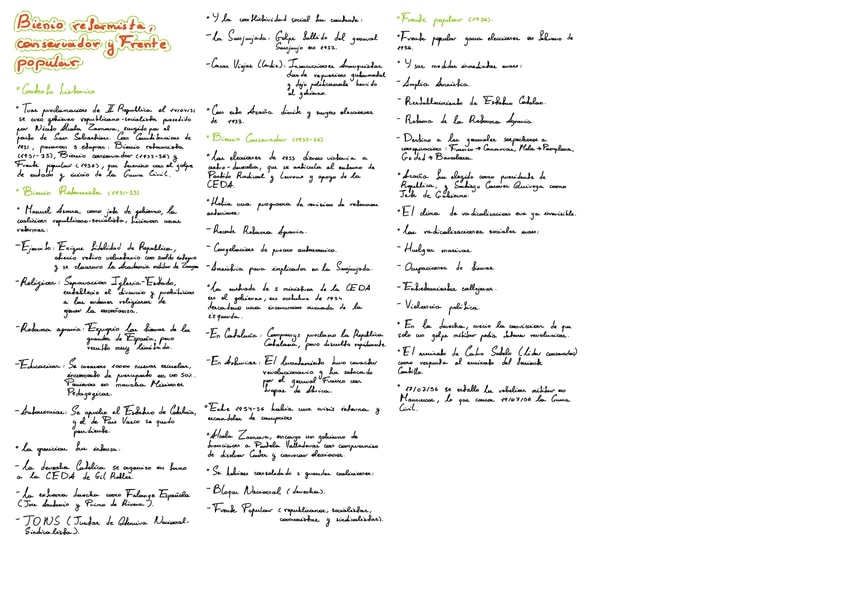 Bienio reformista,
conservador y Frente
popular
• Contexto histórico
• Tras proclamacion de II Republica el 14/04/31
se creó gobierno republicano-socialista presidido
por Niceto Alcala Zamora, surgido por el
pacto de San Sebastian. Con Constitucion de
1931, pasamos 3 etapas: Bienio reformista
(1931-33), Bienio conservador (1933-36) y
Frente popular (1936), que termino con el golpe
de estado y inicio de la Guerra Civil.
• Bienio Reformista (1931-33)
• Manuel Azana como jefe de gobierno, la
coalicion republicano-socialista, hicieron unas
reformas:
- Ejercito: Exigue fidelidad de Republica,
ofrecio retiro voluntario con sueldo integro
y se clausuro la Academia militar de Zaragoza
- Religion: Separacion Iglesia-Estado,
establecio el divorcio y prohibicion
a las ordenes religiosas de
ejercer la enseñanza.
- Reforma agraria: Expropio las tierras de la
grandes de España, pero
resulto muy limitada.
- Educacion: Se crearon 10000 nuevas escuelas,
incremento de presupuesto en un 50%.
Pusieron en marcha Misiones
Pedagogicas.
- Autonomias: Se aprobo el Estatuto de Cataluña,
y el de Pais Vasco se quedo
pendiente.
• La oposicion fue intensa:
- La derecha Catolica se organizo en torno
a la CEDA de Gil Robles.
- La extrema derecha como Falange Española
(Jose Antonio y Primo de Rivera).
- JONS (Juntas de Ofensiva Nacional-
Sindicalista).
• Y la conflictividad social fue constante:
- La Sanjurjada: Golpe fallido del general
Sanjurjo en 1932.
- Casas Viejas (Cadiz): Insurrecciones Anarquistas
dura de represion gubernamental
y dejo politicamente herido
al gobierno.
• Con esto Azaña dimite y surgen elecciones
de 1933.
• Bienio Conservador (1933-36)
• Las elecciones de 1933 dieron victoria a
centro-derecha, que se articulo al entorno de
Partido Radical y Lerroux y apoyo de la
CEDA.
• Habia una programa de revision de reformas
anteriores:
- Recorte Reforma Agraria.
- Congelacion de proceso autonomico.
- Amnistia para implicados en la Sanjurjada.
• La entrada de 3 ministros de la CEDA
en el gobierno, en octubre de 1934
desencadeno una insurreccion armada de la
izquierda.
- En Cataluña: Companys proclamo la Republica
Catalana, pero disuelto rapidamente.
- En Asturias: El levantamiento tuvo caracter
revolucionario y fue sofocado
por el general Franco con
tropas de Africa.
• Entre 1934-36 habia una crisis interna, y
escandalos de corrupcion
• Alcala Zamora, encargo un gobierno de
transicion a Portela Valladares con compromiso
de disolver Cortes y convocar elecciones.
• Se habian consolidado 2 grandes coaliciones:
- Bloque Nacional (derecha).
- Frente Popular (republicanos, socialistas,
comunistas y sindicalistas).
• Frente popular (1936).
• Frente popular gana elecciones en febrero de
1936.
• Y sus medidas inmediatas eran:
- Amplia Amnistia.
- Restablecimiento de Estatuto Catalan.
- Retoma de la Reforma Agraria.
- Destino a los generales sospechosos a
conspiracion: Franco → Canarias, Mola → Pamplona,
Goded → Baleares.
• Azaña fue elegido como presidente de
Republica, y Santiago Casares Quiroga como
Jefe de Gobierno.
• El clima de radicalizacion era ya irreversible.
• Las radicalizaciones sociales eran:
- Huelgas masivas.
- Ocupaciones de tierras.
- Enfrentamientos callejeros.
- Violencia politica.
• En la derecha, crecio la conviccion de que
solo un golpe militar podia detener revolucion.
• El asesinato de Calvo Sotelo (lider conservador)
como respuesta al asesinato del teniente
Castillo.
• 17/07/36 se estallo la rebelion militar en
Marruecos, lo que causo 18/07/36 la Guerra
Civil.